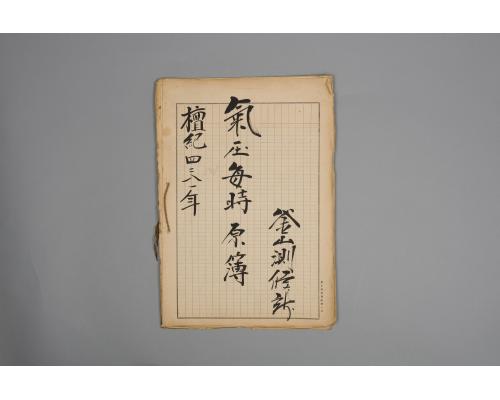 釜山測候所
氣圧每時原簿
檀紀四二八一年